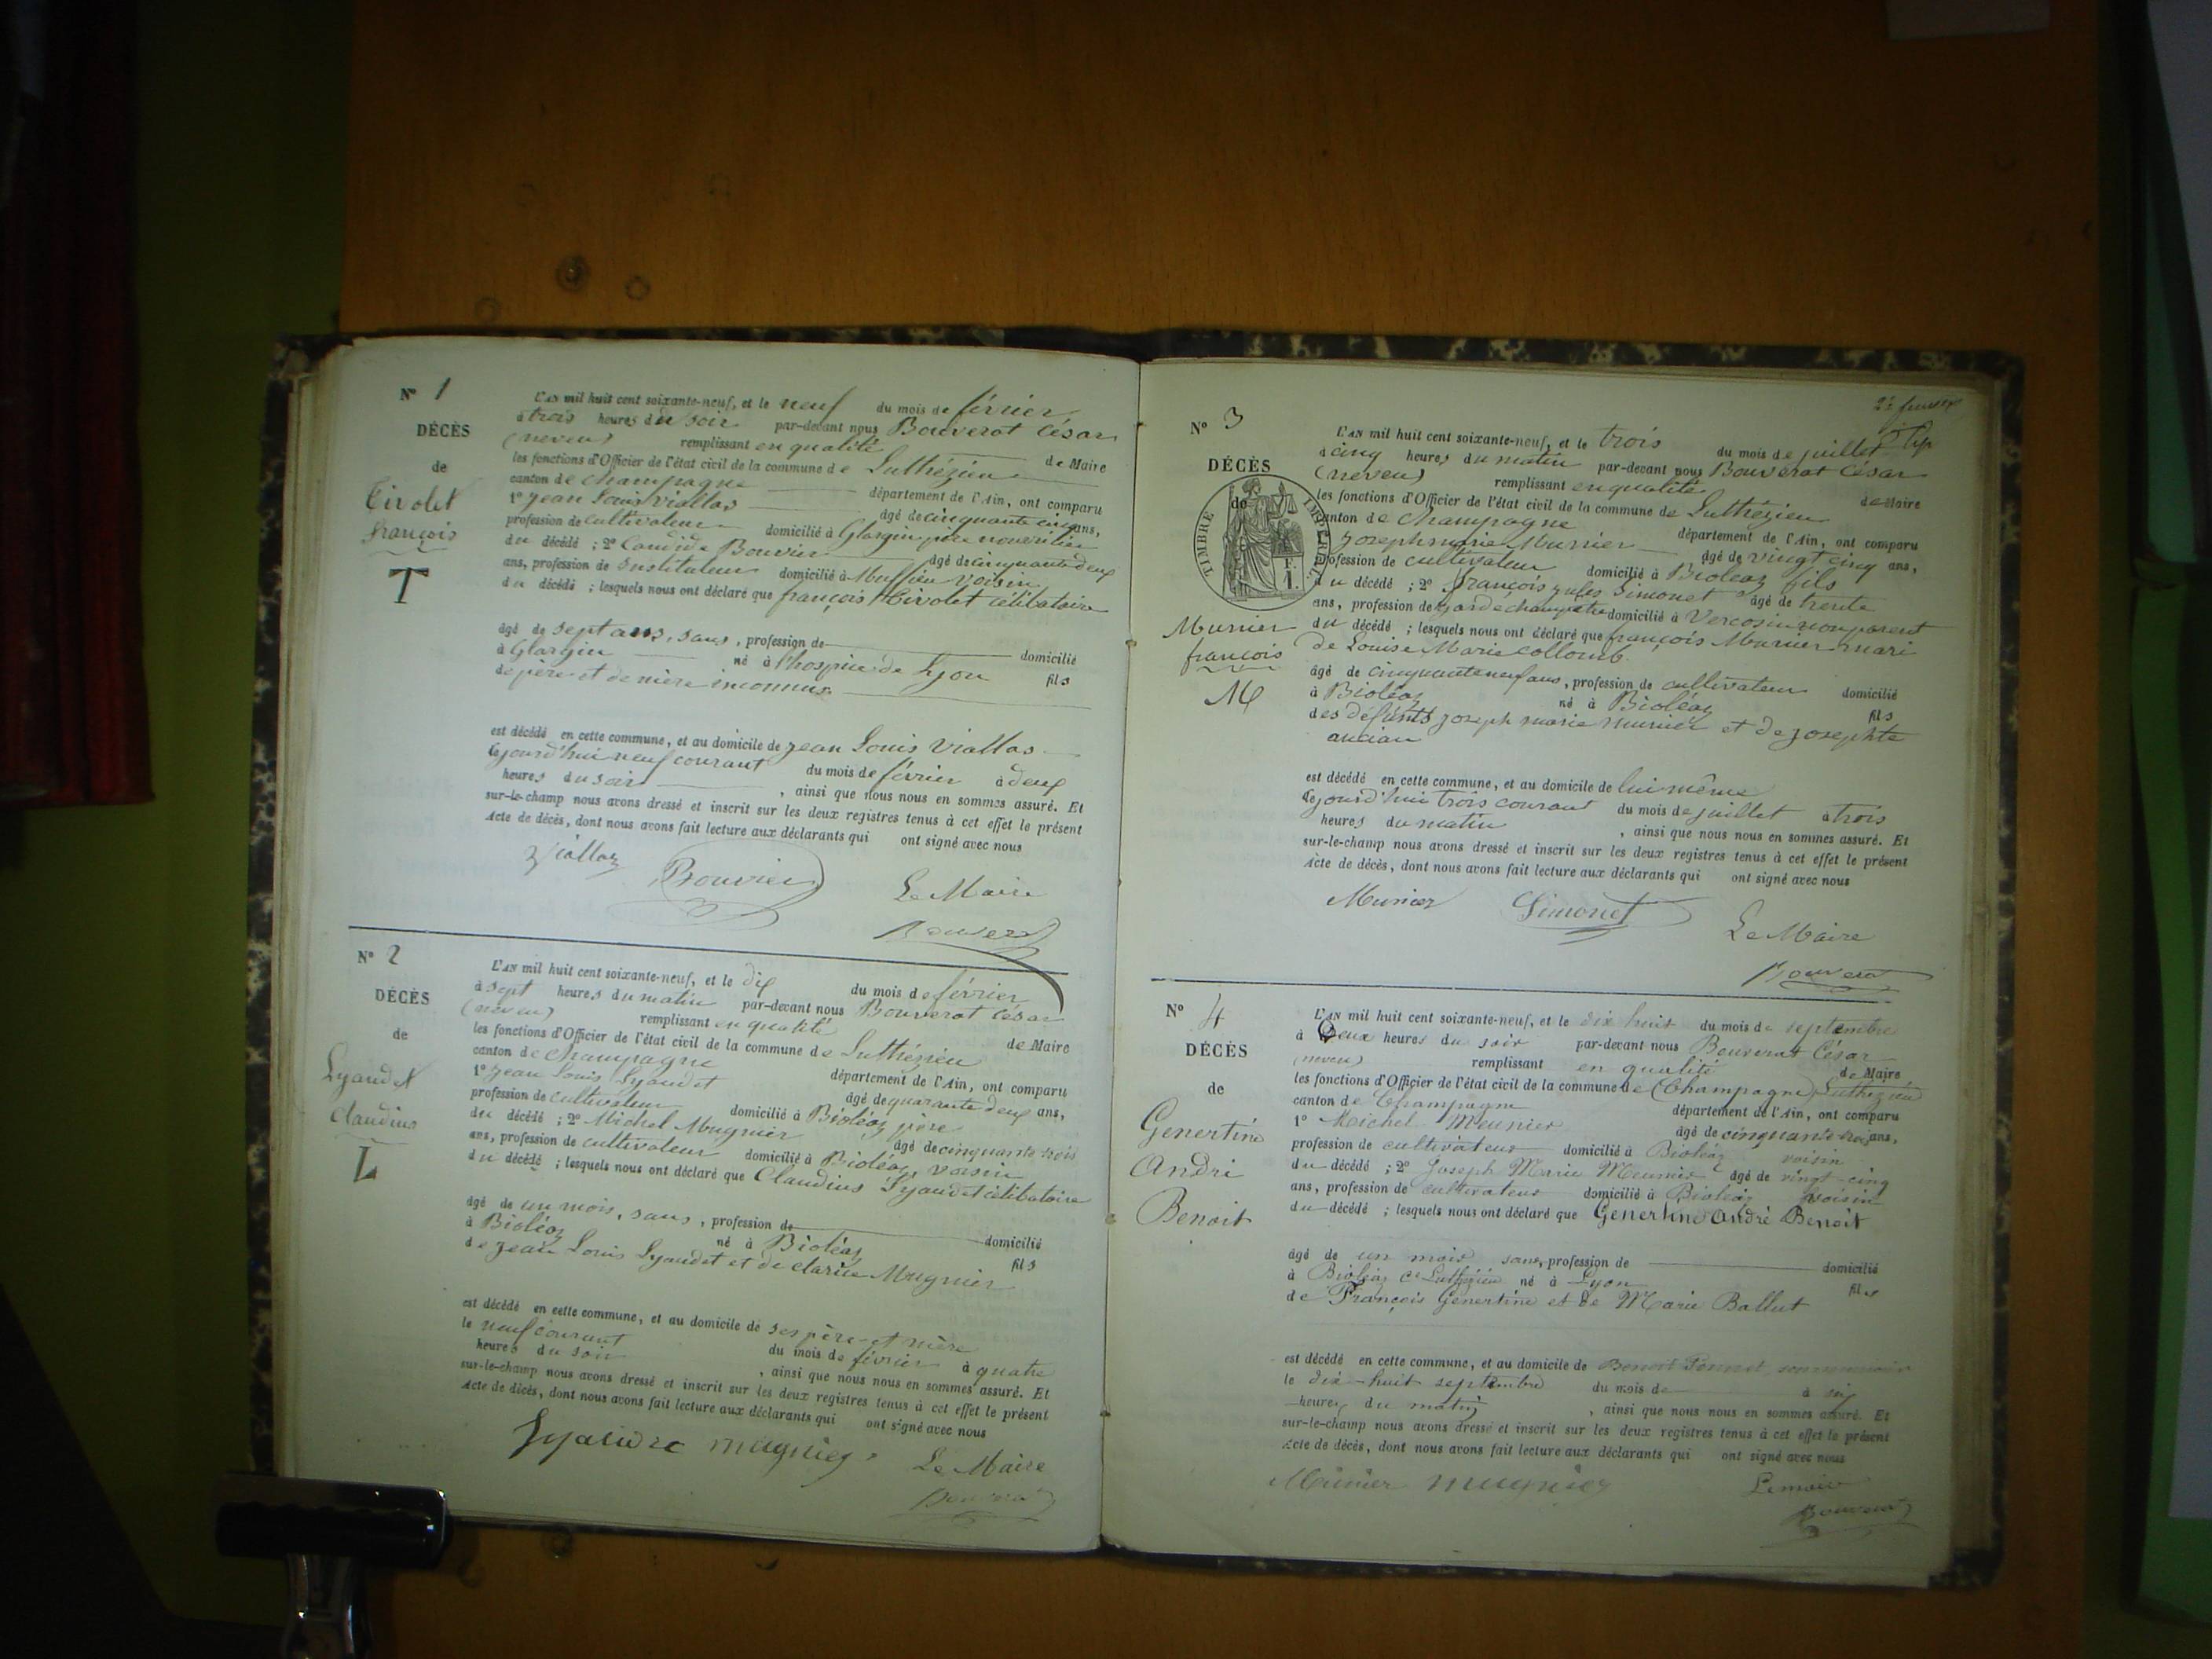 N° 1
DÉCÈS
de
Tirolet
françois
T
L'AN mil huit cent soixante-neuf, et le neuf du mois de février
à trois heures du soir par-devant nous Bouverat César
(neveu) remplissant en qualité de Maire
les fonctions d'Officier de l'état civil de la commune de Luthézieu
canton de champagne département de l'Ain, ont comparu
1° Jean Louis Viallas âgé de cinquante cinq ans,
profession de cultivateur domicilié à Glargin père nourricier
du décédé ; 2° Candide Bouvier âgé de cinquante deux
ans, profession de Instituteur domicilié à voisin
du décédé ; lesquels nous ont déclaré que françois Tirolet célibataire
âgé de sept ans, sans, profession de domicilié
à Glargin né à l'hospice de Lyon fils
de père et de mère inconnus
est décédé en cette commune, et au domicile de Jean Louis Viallas
le jourd'hui neuf courant du mois de février à deux
heures du soir, ainsi que nous nous en sommes assuré. Et
sur-le-champ nous avons dressé et inscrit sur les deux registres tenus à cet effet le présent
Acte de décès, dont nous avons fait lecture aux déclarants qui ont signé avec nous
Viallaz Bouvier Le Maire
Bouverat
N° 2
DÉCÈS
de
Lyaudet
Claudius
L
L'AN mil huit cent soixante-neuf, et le dix du mois de février
à sept heures du matin par-devant nous Bouverat César
(neveu) remplissant en qualité de Maire
les fonctions d'Officier de l'état civil de la commune de Luthézieu
canton de champagne département de l'Ain, ont comparu
1° Jean Louis Lyaudet âgé de quarante deux ans,
profession de cultivateur domicilié à Bioléaz père
du décédé ; 2° Michel Mugnier âgé de cinquante trois
ans, profession de cultivateur domicilié à Bioléaz, voisin
du décédé ; lesquels nous ont déclaré que Claudius Lyaudet célibataire
âgé de un mois, sans, profession de domicilié
à Bioléaz né à Bioléaz fils
de Jean Louis Lyaudet et de clarice Mugnier
est décédé en cette commune, et au domicile de ses père et mère
le neuf courant du mois de février à quatre
heures du soir, ainsi que nous nous en sommes assuré. Et
sur-le-champ nous avons dressé et inscrit sur les deux registres tenus à cet effet le présent
Acte de décès, dont nous avons fait lecture aux déclarants qui ont signé avec nous
Lyaudet mugnier Le Maire
Bouverat
N° 3
DÉCÈS
de
TIMBRE IMPERIAL
1 F.
Munier
françois
M
L'AN mil huit cent soixante-neuf, et le trois du mois de juillet
à cinq heures du matin par-devant nous Bouverat César
(neveu) remplissant en qualité de Maire
les fonctions d'Officier de l'état civil de la commune de Luthézieu
canton de champagne département de l'Ain, ont comparu
Joseph marie Munier âgé de vingt cinq ans,
profession de cultivateur domicilié à Bioléaz fils
du décédé ; 2° françois jules Simonet âgé de trente
ans, profession de garde champêtre domicilié à Vercosin non parent
du décédé ; lesquels nous ont déclaré que françois Munier mari
de Louise Marie collomb.
âgé de cinquante neuf ans, profession de cultivateur domicilié
à Bioléaz né à Bioléaz fils
des défunts joseph marie munier et de josephte
ancian
est décédé en cette commune, et au domicile de lui même
le jourd'hui trois courant du mois de juillet à trois
heures du matin, ainsi que nous nous en sommes assuré. Et
sur-le-champ nous avons dressé et inscrit sur les deux registres tenus à cet effet le présent
Acte de décès, dont nous avons fait lecture aux déclarants qui ont signé avec nous
Munier Simonet Le Maire
Bouverat
N° 4
DÉCÈS
de
Genertine
André
Benoit
L'AN mil huit cent soixante-neuf, et le dix huit du mois de septembre
à Deux heures du soir par-devant nous Bouverat César
(neveu) remplissant en qualité de Maire
les fonctions d'Officier de l'état civil de la commune de (Champagne) Luthézieu
canton de Champagne département de l'Ain, ont comparu
1° Michel Meunier âgé de cinquante trois ans,
profession de cultivateur domicilié à Bioléaz voisin
du décédé ; 2° Joseph Marie Meunier âgé de vingt-cinq
ans, profession de cultivateur domicilié à Bioléaz voisin
du décédé ; lesquels nous ont déclaré que Genertine André Benoit
âgé de un mois sans, profession de domicilié
à Bioléaz Ce Luthézieu né à Lyon fils
de François Genertine et de Marie Ballut
est décédé en cette commune, et au domicile de Benoit Ponnet
le dix-huit septembre du mois de à six
heures du matin, ainsi que nous nous en sommes assuré. Et
sur-le-champ nous avons dressé et inscrit sur les deux registres tenus à cet effet le présent
Acte de décès, dont nous avons fait lecture aux déclarants qui ont signé avec nous
Munier mugnier Le maire
Bouverat